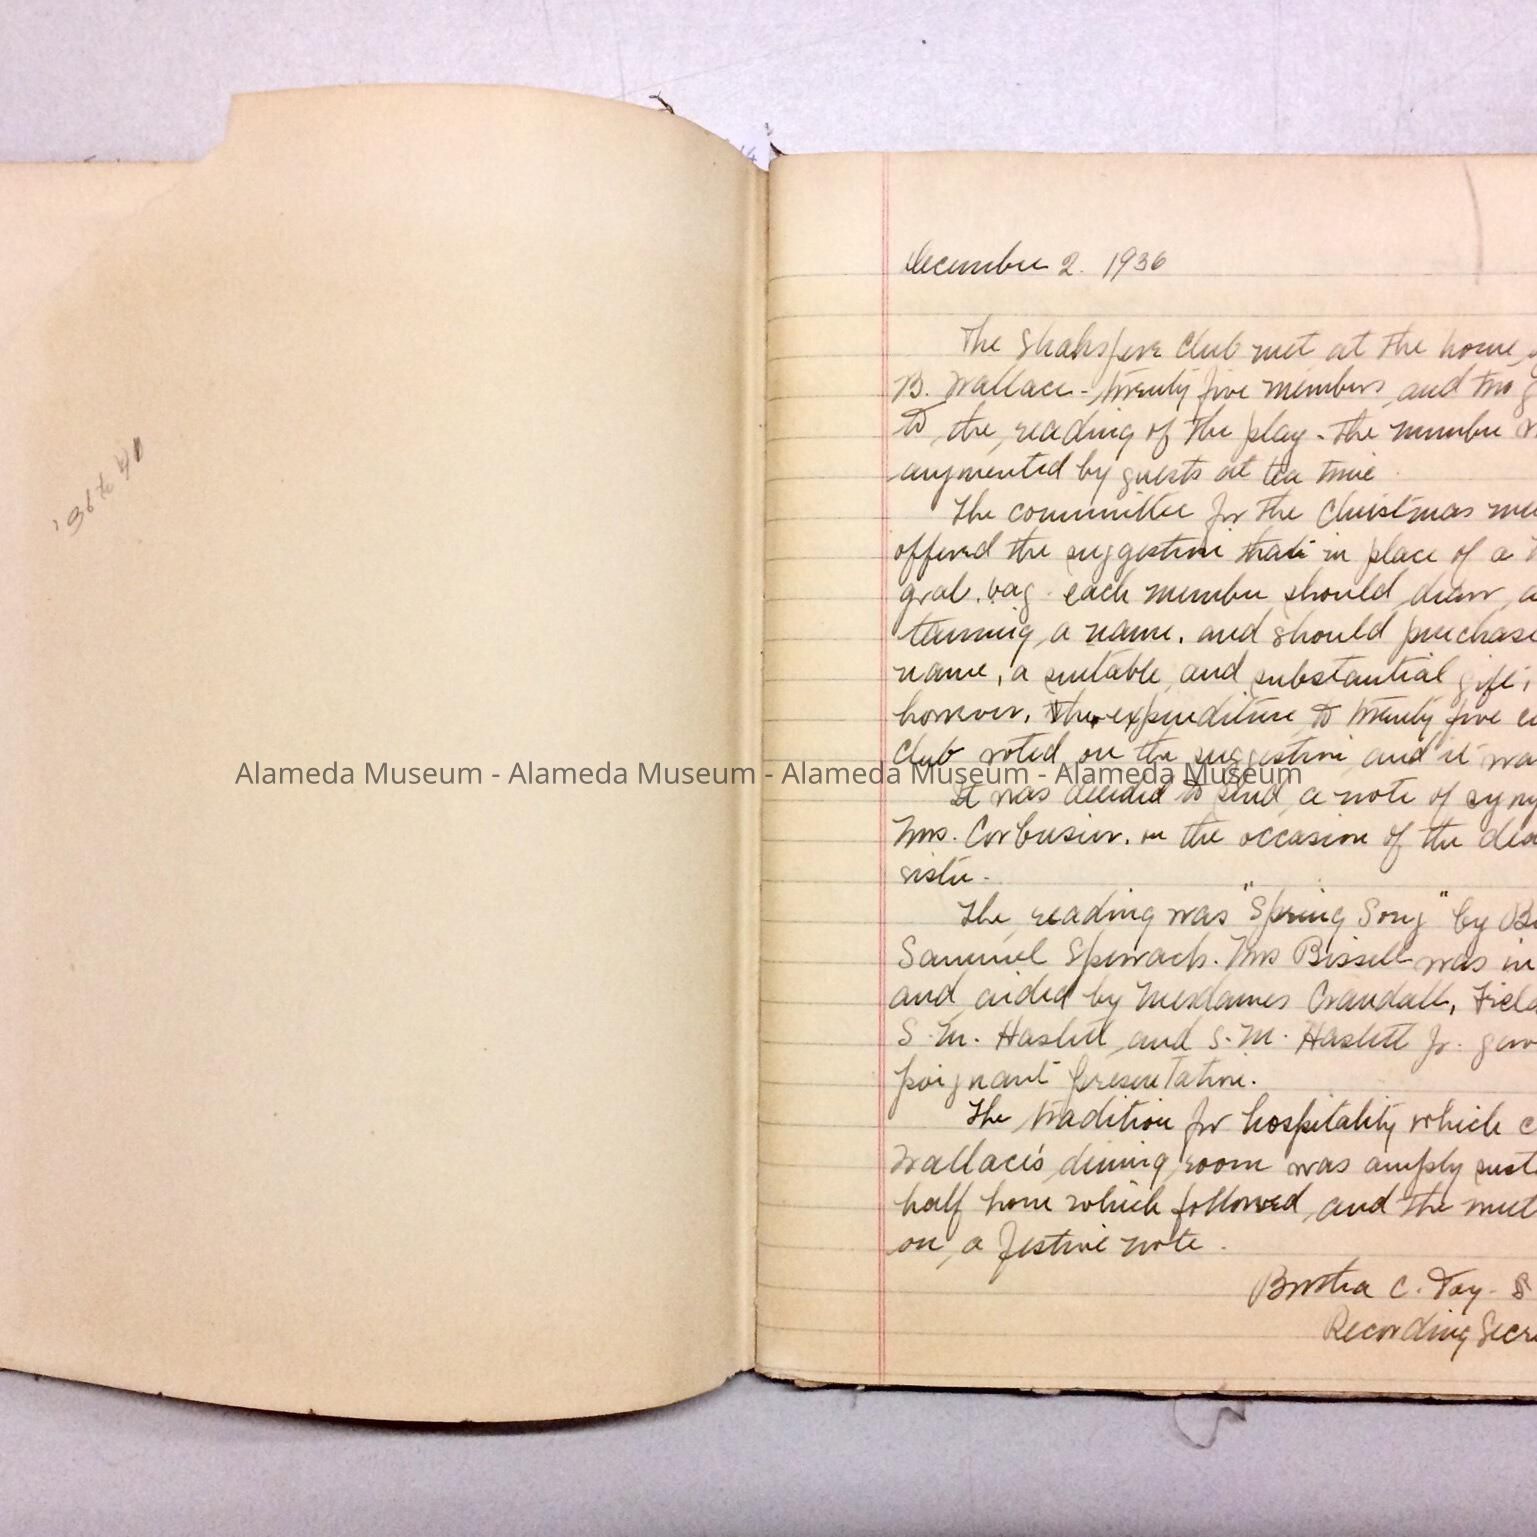 '36 to 40
December 2. 1936
The Shakspere Club met at the home
B. Wallace - twenty five members and two
to the reading of the play - The number
augmented by guests at tea time
The committee for the Christmas
offered the suggestion that in place of a
grab bag each member should draw
taining a name. and should purchase
name, a suitable and substantial gift;
however, the expenditure to twenty five
club voted on the suggestion and it was
Alameda Museum - Alameda Museum - Alameda Museum - Alameda Museum
It was decided to send a note of
Mrs. Corbusier. on the occasion of the
sister.
The reading was "Spring Song" by
Samuel Spewack. Mrs Bissell was in
and aided by Mesdames Crandall,
S. M. Haslett and S. M. Haslett Jr.
poignant presentation.
The tradition for hospitality which
Wallace's dining room was amply
half hour which followed and the
on a festive note.
Bertha C. Tay -
Recording